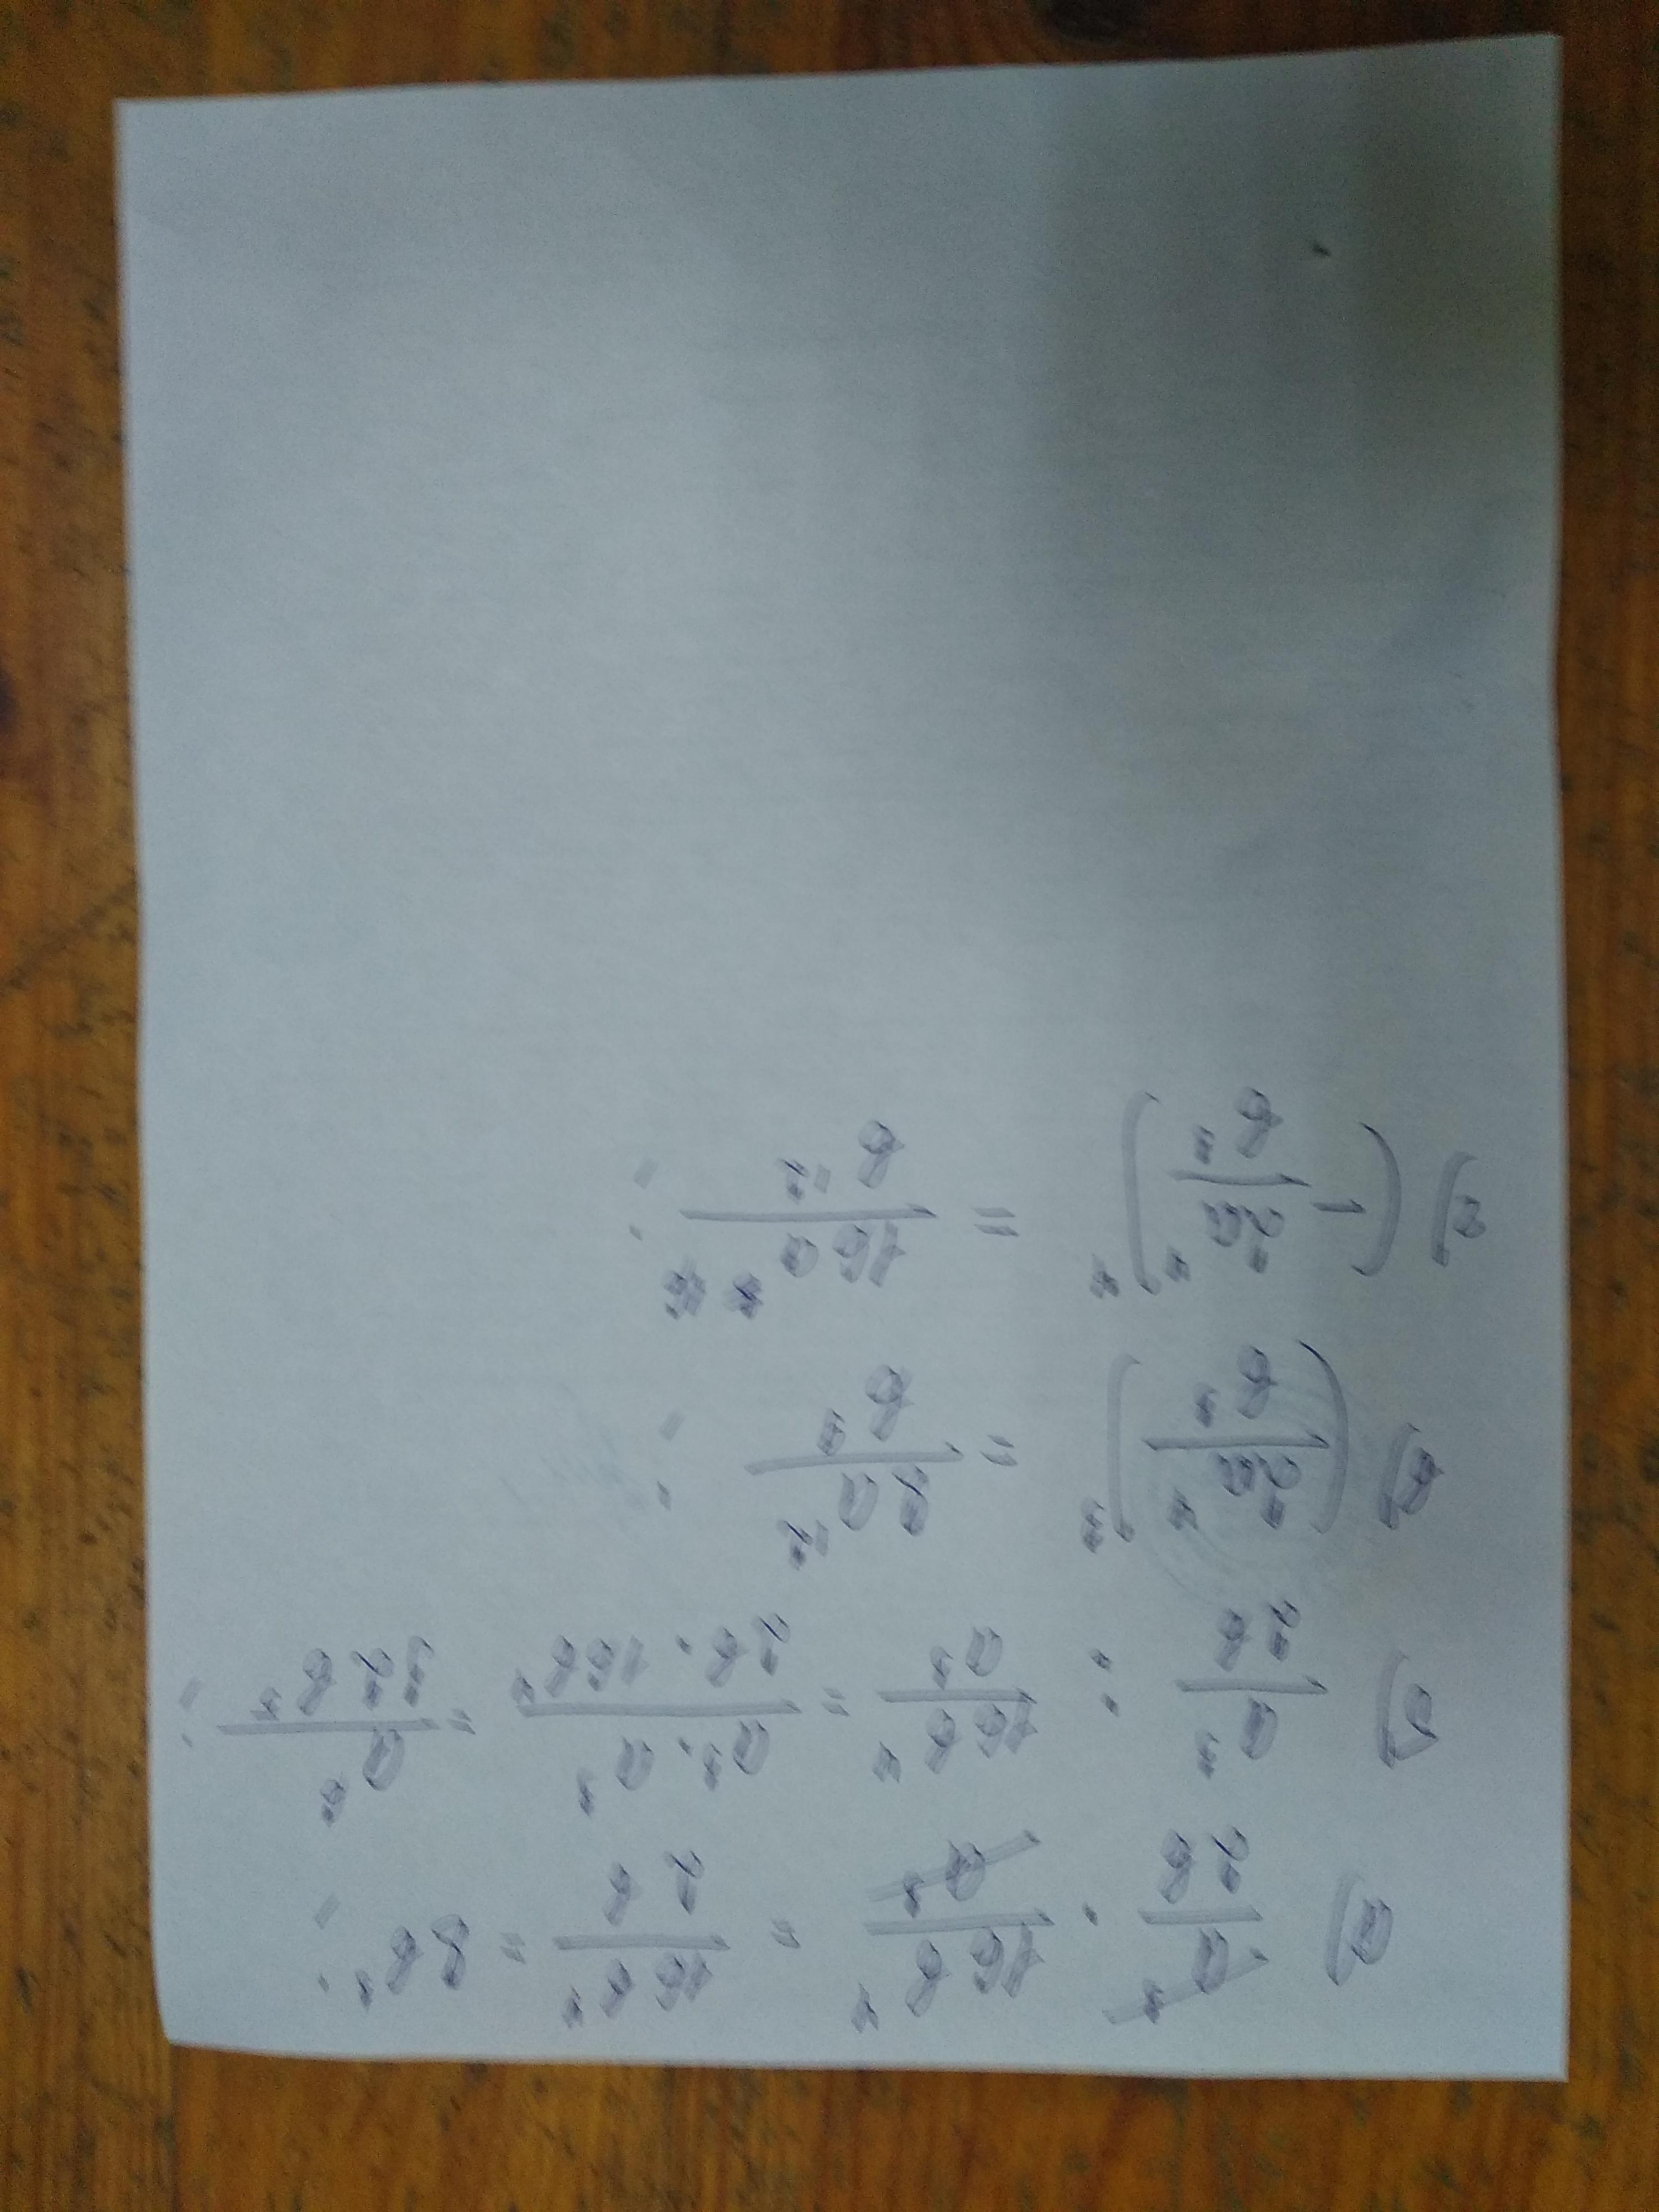 а) a³/2b · 16b⁴/a³ = 16b⁴/2b = 8b³;
б) a³/2b : 16b⁴/a³ = a³·a³/2b·16b⁴ = a⁶/32b⁵;
в) (2a⁴/b³) = 2a¹²/b;
г) (-2a⁴/b) = 16a¹⁶/b¹²;